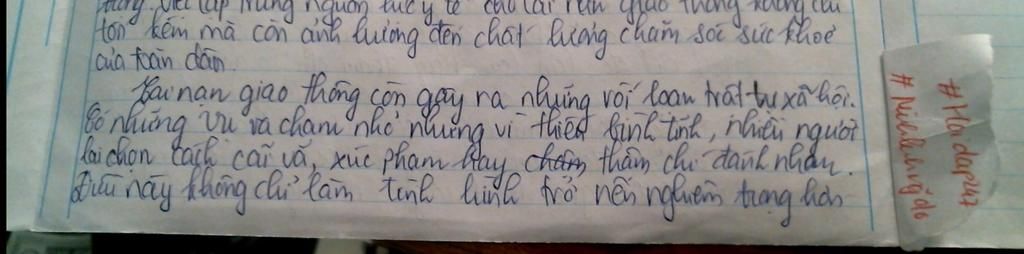 trọng. Việc tập trung nguồn lực y tế cho tai nạn giao thông không chỉ
tốn kém mà còn ảnh hưởng đến chất lượng chăm sóc sức khoẻ
của toàn dân.
Tai nạn giao thông còn gây ra những rối loạn trật tự xã hội.
Có những vụ va chạm nhỏ nhưng vì thiếu bình tĩnh, nhiều người
lại chọn cách cãi vã, xúc phạm hay chậm thậm chí đánh nhau.
Điều này không chỉ làm tình hình trở nên nghiêm trọng hơn
#Hoidap247